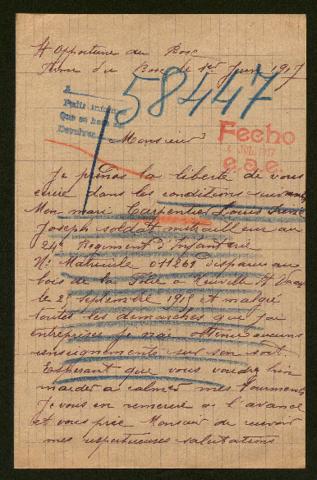 St Opportune du Bosc
Ferme du Bosc le 1er Juin 1917
58447
Fecho
1917
Monsieur
Je prends la liberté de vous
ecrire dans les conditions suivantes
Mon mari Carpentier Louis
Joseph soldat mitrailleur au
24e Regiment d'Infanterie
No Matricule 011269 disparu au
bois de la Folie a Neuville St Vaas
le 25 septembre 1915 et malgré
toutes les demarches que j'ai
entreprises je n'ai obtenu aucuns
renseignements sur son sort.
Esperant que vous voudrez bien
m'aider a calmer mes tourments
Je vous en remercie a l'avance
et vous prie Monsieur de recevoir
mes respectueuses salutations